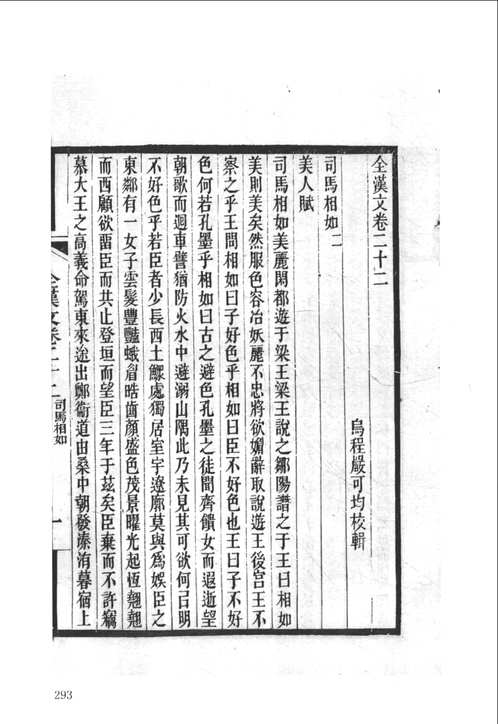 全漢文卷二十二
烏程嚴可均校輯
司馬相如二
美人賦
司馬相如美麗閑都遊于梁王梁王說之鄒陽譖之于王曰相如
美則美矣然服色容冶妖麗不忠將欲媚辭取說遊王後宮王不
察之乎王問相如曰子好色乎相如曰臣不好色也王曰子不好
色何若孔墨乎相如曰古之避色孔墨之徒聞齊饋女而遐逝望
朝歌而迴車譬猶防火水中避溺山隅此乃未見其可欲何㠯明
不好色乎若臣者少長西土鰥處獨居室宇遼廓莫與爲娛臣之
東鄰有一女子雲髮豐豔蛾眉皓齒顏盛色茂景曜光起恆翹翹
而西顧欲畱臣而共止登垣而望臣三年于茲矣臣棄而不許竊
慕大王之高義命駕東來途出鄭衞道由桑中朝發溱洧暮宿上
全漢文卷二十二 司馬相如
一
293